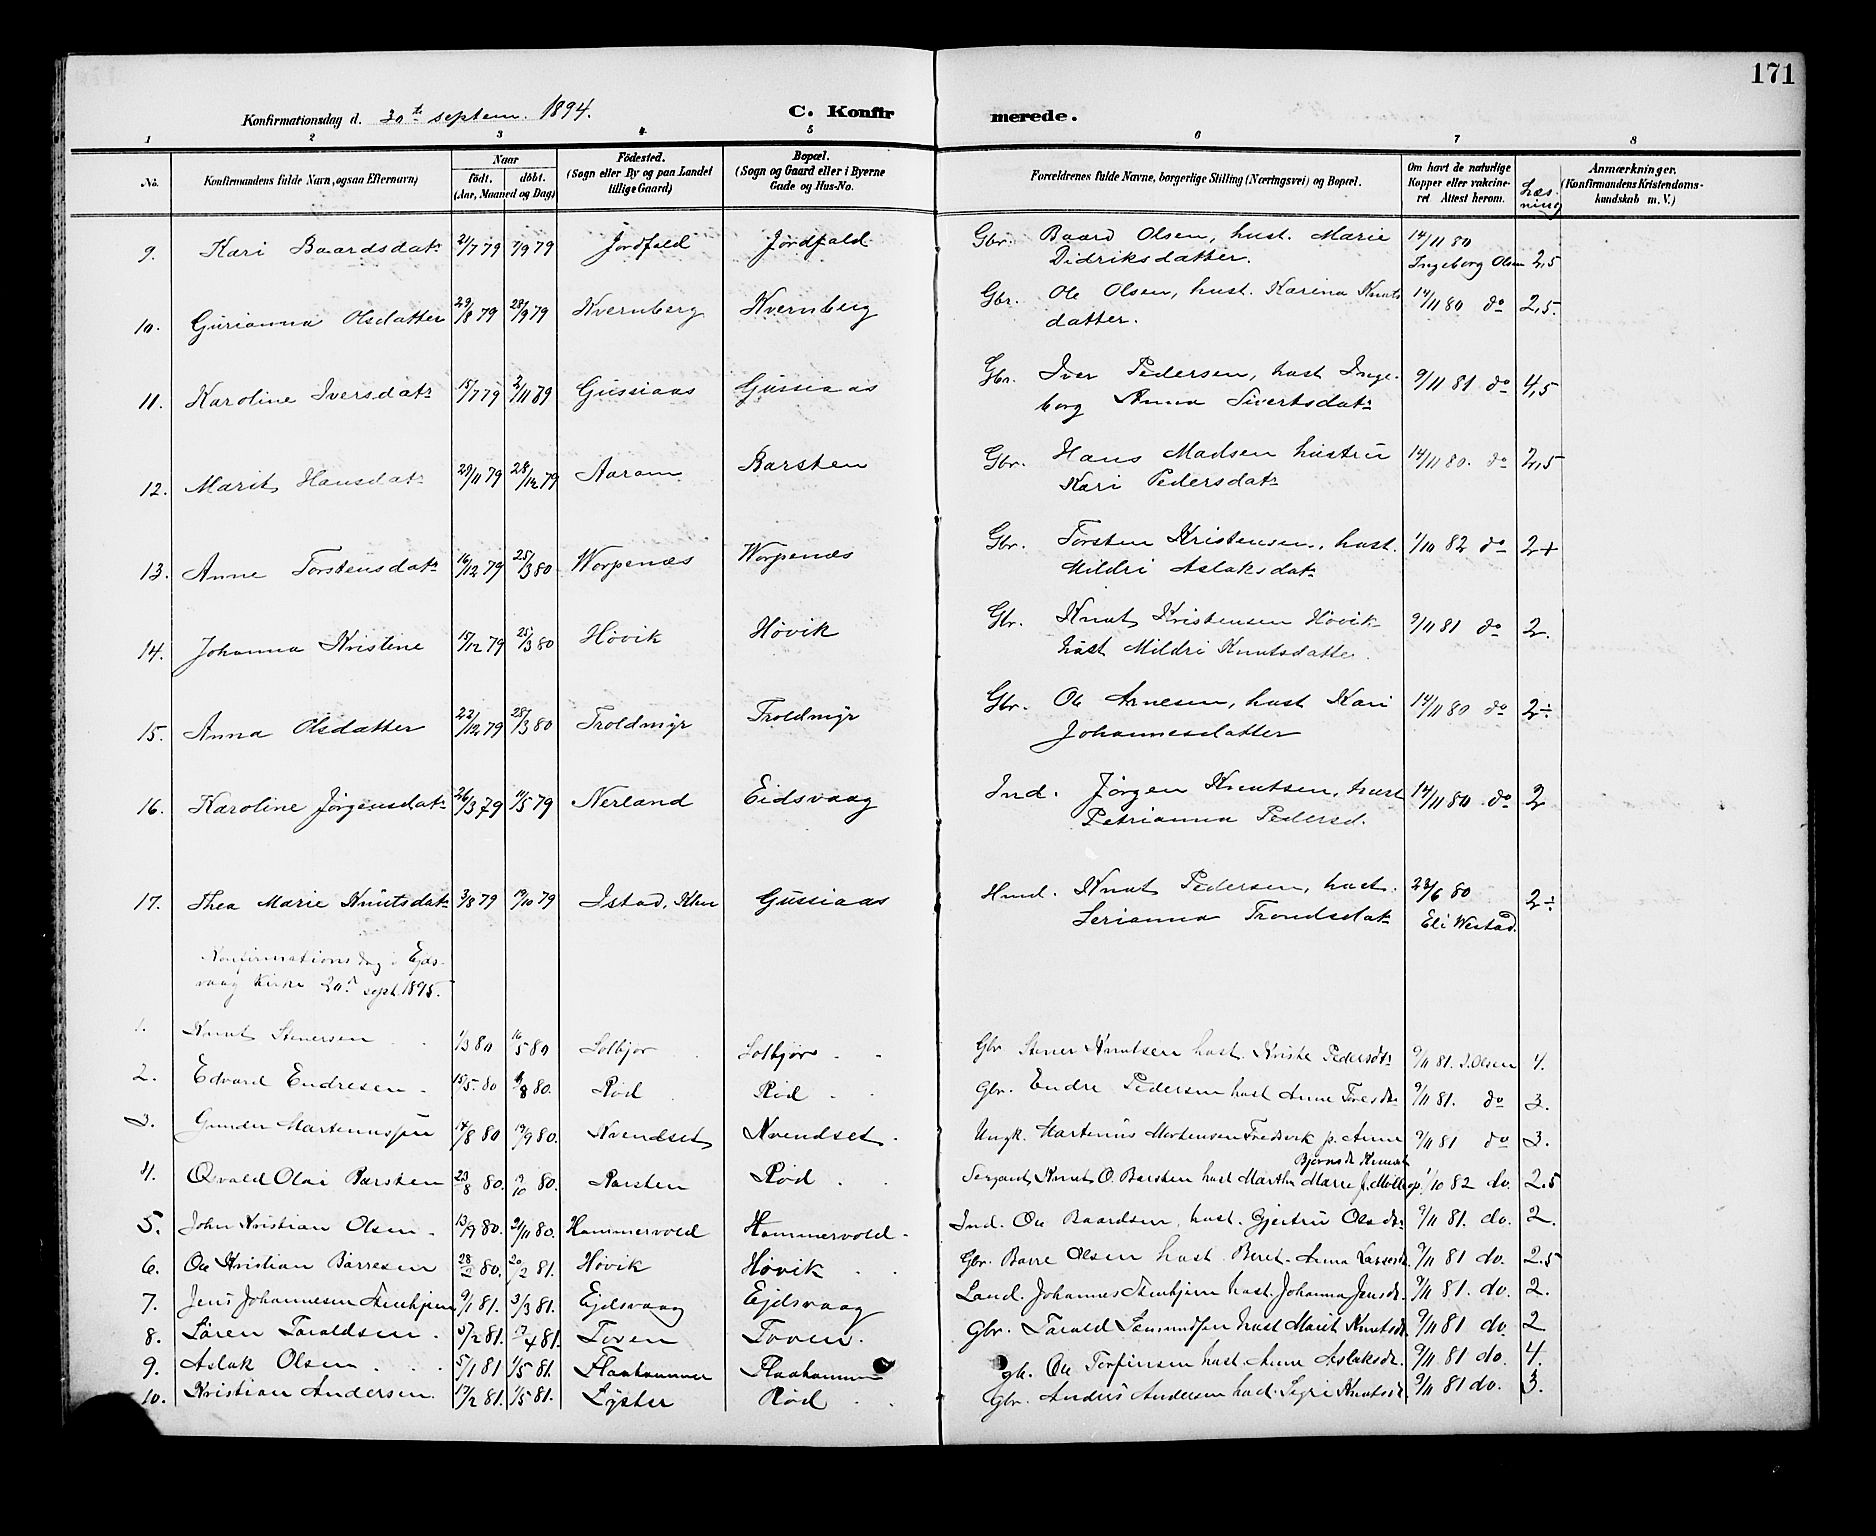 171
Konfirmationsdag d. 30te septem. 1894. C. Konfir merede.
1 2 3 4 5 6 7 8
No. Konfirmandens fulde Navn, ogsaa Efternavn) Naar Födt. döbt. (Aar, Maaned og Dag) Födested. (Sogn eller By og paa Landet tillige Gaard) Bopæl. (Sogn og Gaard eller i Byerne Gade og Hus-No. Forældrenes fulde Navne, borgerlige Stilling (Næringsvei) og Bopæl. Om havt de naturlige Kopper eller vakcineret Attest herom. Læsning Anmærkninger. (Konfirmandens Kristendomskundskab m. V.)
9. Kari Baardsdatr 2/7 79 7/9 79 Jordfald Jordfald Gbr. Baard Olsen, hust. Marie 14/11 80
Didriksdatter. Ingeborg Olsen 2,5
10. Gurianna Olsdatter 29/8 79 28/9 79 Kvernberg Kvernberg Gbr. Ole Olsen, hust. Karina Knuts 14/11 80 do 2,5.
datter.
11. Karoline Iversdatr 15/7 79 2/11 89 Gussiaas Gussiaas Gbr. Iver Pedersen, hust Inge- 9/11 81 do 4,5
borg Anna Sivertsdatr
12. Marit Hansdatr 29/11 79 28/12 79 Aaram Barsten Gbr. Hans Madsen hustru 14/11 80. do 2,5
Kari Pedersdatr
13. Anne Torstensdatr 16/12 79 25/3 80 Worpenæs Worpenæs Gbr. Torsten Kristensen, hust. 1/10 82 do 2+
Mildri Aslaksdatr
14. Johanna Kristine 15/12 79 25/3 80 Høvik Høvik Gbr. Knut Kristensen Høvik 9/11 81 do 2.
hust Mildri Knutsdatte.
15. Anna Olsdatter 22/12 79 28/3 80 Troldmyr Troldmyr Gbr. Ole Arnesen, hust Kari 14/11 80 do 2÷
Johannesdatter
16. Karoline Jørgensdatr 26/3 79 11/5 79 Nerland Eidsvaag Ind. Jørgen Knutsen, hust 14/11 80 do 2
Petrianna Pedersd.
17. Thea Marie Knutsdatr 3/8 79 19/10 79 Istad, Kleive Gussiaas Hmd. Knut Pedersen, hust. 23/6 80 2÷
Serianna Trondsdatr Eli Westad.
Konfirmationsdag i Ejds-
vaag Kirke sept. 1895.
1. Knut Stenersen 1/3 80 16/5 80 Solbjør Solbjør Gbr Stener Knutsen hust. Kriste Pedersdtr 9/11 81. I. Olsen 4.
2. Edvard Endresen 15/5 80 /8 80. Rød Rød Gbr. Endre Pedersen hust Anne Toresdtr 9/11 81. do 3.
3. Gunder Martinussen 14/8 80 19/9 80. Nvendset Nvendset Ungk. Martinus Mortensen Fredsvik p. Anne 9/11 81 do 3.
Bjørnsdtr
4. Osvald Olai Barsten 23/8 80. /10 80. Barsten Rød Sergeant Knut O. Barsten hust Martha Marie f. 1/10 82 do. 2.5
5. John Kristian Olsen 13/9 80. 21/11 80. Hammervold Hammervold Ind. Ole Baardsen, hust. Gjertru Olsdtr 9/11 81. do. 2.
6. Ole Kristian Barresen 28/ 80. 20/2 81. Høvik Høvik Gbr. Barre Olsen hust Beret Anna Larsdtr 9/11 81 do. 2.5
7. Jens Johannesen Stenhjem 9/1 81. 3/3 81. Ejdsvaag Ejdsvaag Land. Johannes Stenhjem hust. Johanna Jensdtr. 9/11 81. do. 2.
8. Søren Taraldsen 5/2 81. 17/4 81. Toven Toven. Gbr. Tarald Samundsen hust Marit Knutsdtr. 9/11 81 do. 2
9. Aslak Olsen 5/1 81 1/5 81. Flaahammer Flaahammer gb. Ole Torfinsen hust. Anne Aslaksdtr. 9/11 81 do. 4.
10. Kristian Andersen 17/2 81. 1/5 81. Lyster Rød Gbr. Anders Andersen hust. Sigri Knutsdtr 9/11 81 do. 3.